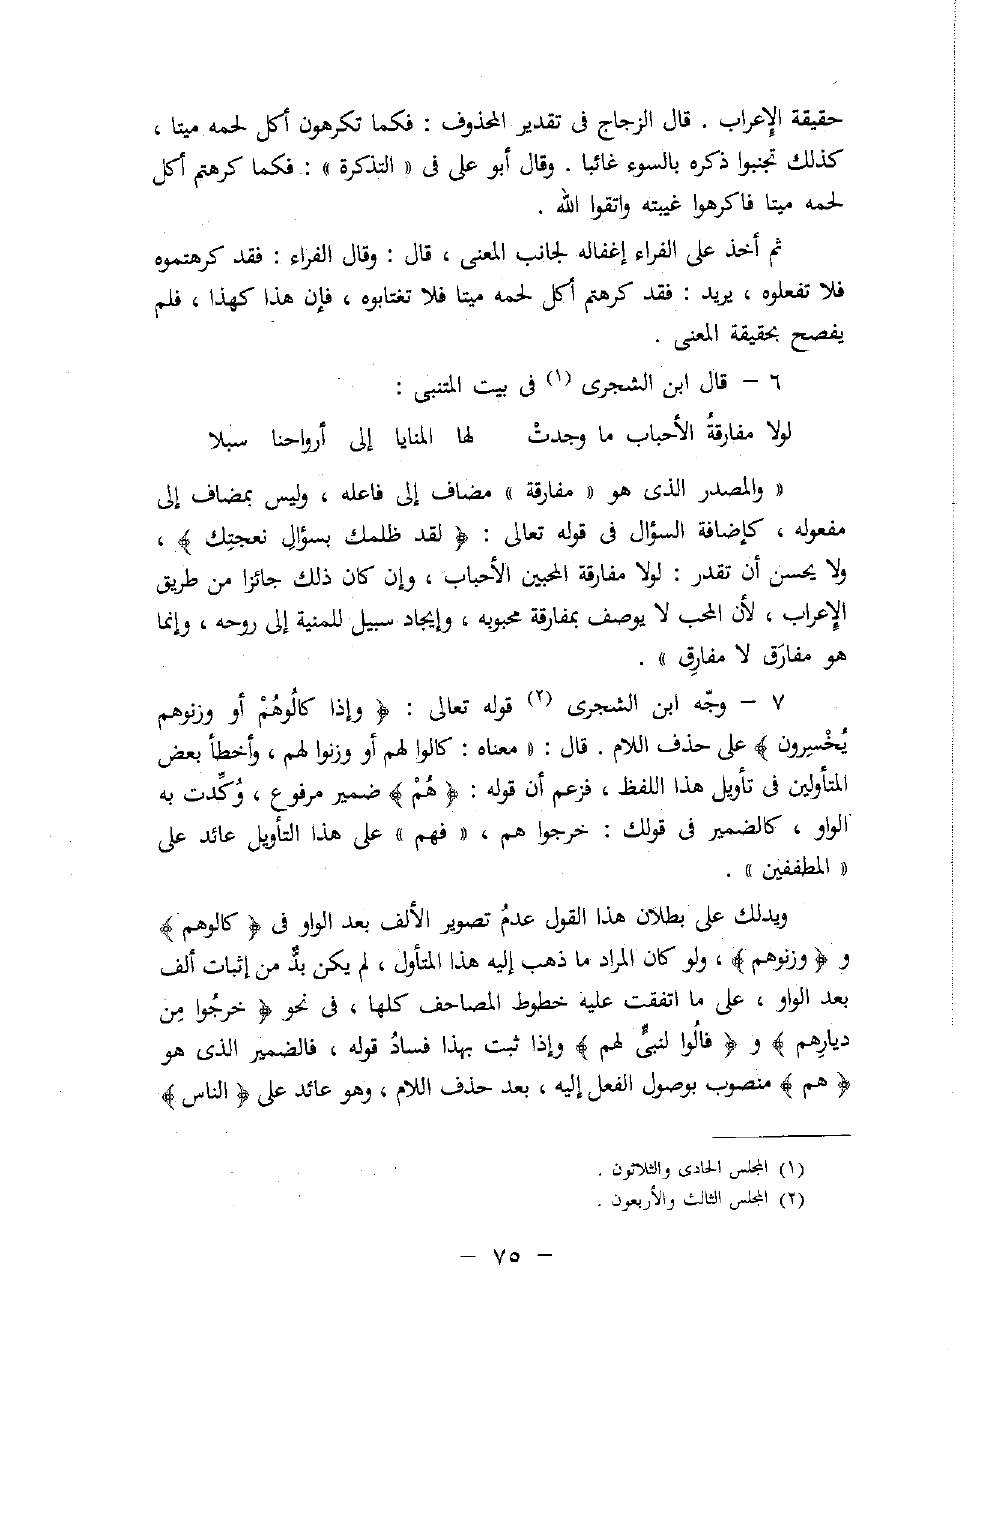 حقيقة الإعراب . قال الزجاج فى تقدير المحذوف : فكما تكرهون أكل لحمه ميتا ،
كذلك تجنبوا ذكره بالسوء غائبا . وقال أبو على فى « التذكرة » : فكما كرهتم أكل
لحمه ميتا فاكرهوا غيبته واتقوا الله .
ثم أخذ على الفراء إغفاله لجانب المعنى ، قال : وقال الفراء : فقد كرهتموه
فلا تفعلوه ، يريد : فقد كرهتم أكل لحمه ميتا فلا تغتابوه ، فإن هذا كهذا ، فلم
يفصح بحقيقة المعنى .
٦ – قال ابن الشجرى (١) فى بيت المتنبى :
لولا مفارقةُ الأحباب ما وجدتْ لها المنايا إلى أرواحنا سبلا
« والمصدر الذى هو « مفارقة » مضاف إلى فاعله ، وليس بمضاف إلى
مفعوله ، كإضافة السؤال فى قوله تعالى : ﴿ لقد ظلمك بسؤالِ نعجتِك ﴾ ،
ولا يحسن أن تقدر : لولا مفارقة المحبين الأحباب ، وإن كان ذلك جائزا من طريق
الإعراب ، لأن المحب لا يوصف بمفارقة محبوبه ، وإيجاد سبيل للمنية إلى روحه ، وإنما
هو مفارَق لا مفارِق » .
٧ – وجّه ابن الشجرى (٢) قوله تعالى : ﴿ وإذا كالُوهُمْ أو وزنوهم
يُخْسِرون ﴾ على حذف اللام . قال : « معناه : كالوا لهم أو وزنوا لهم ، وأخطأ بعض
المتأولين فى تأويل هذا اللفظ ، فزعم أن قوله : ﴿ هُمْ ﴾ ضمير مرفوع ، وُكِّدت به
الواو ، كالضمير فى قولك : خرجوا هم ، « فهم » على هذا التأويل عائد على
« المطففين » .
ويدلك على بطلان هذا القول عدمُ تصوير الألف بعد الواو فى ﴿ كالوهم ﴾
و ﴿ وزنوهم ﴾ ، ولو كان المراد ما ذهب إليه هذا المتأول ، لم يكن بدٌّ من إثبات ألف
بعد الواو ، على ما اتفقت عليه خطوط المصاحف كلها ، فى نحو ﴿ خرجُوا مِن
ديارِهم ﴾ و ﴿ قالُوا لنبىٍّ لهم ﴾ وإذا ثبت بهذا فسادُ قوله ، فالضمير الذى هو
﴿ هم ﴾ منصوب بوصول الفعل إليه ، بعد حذف اللام ، وهو عائد على ﴿ الناس ﴾
(١) المجلس الحادى والثلاثون .
(٢) المجلس الثالث والأربعون .
– ٧٥ –